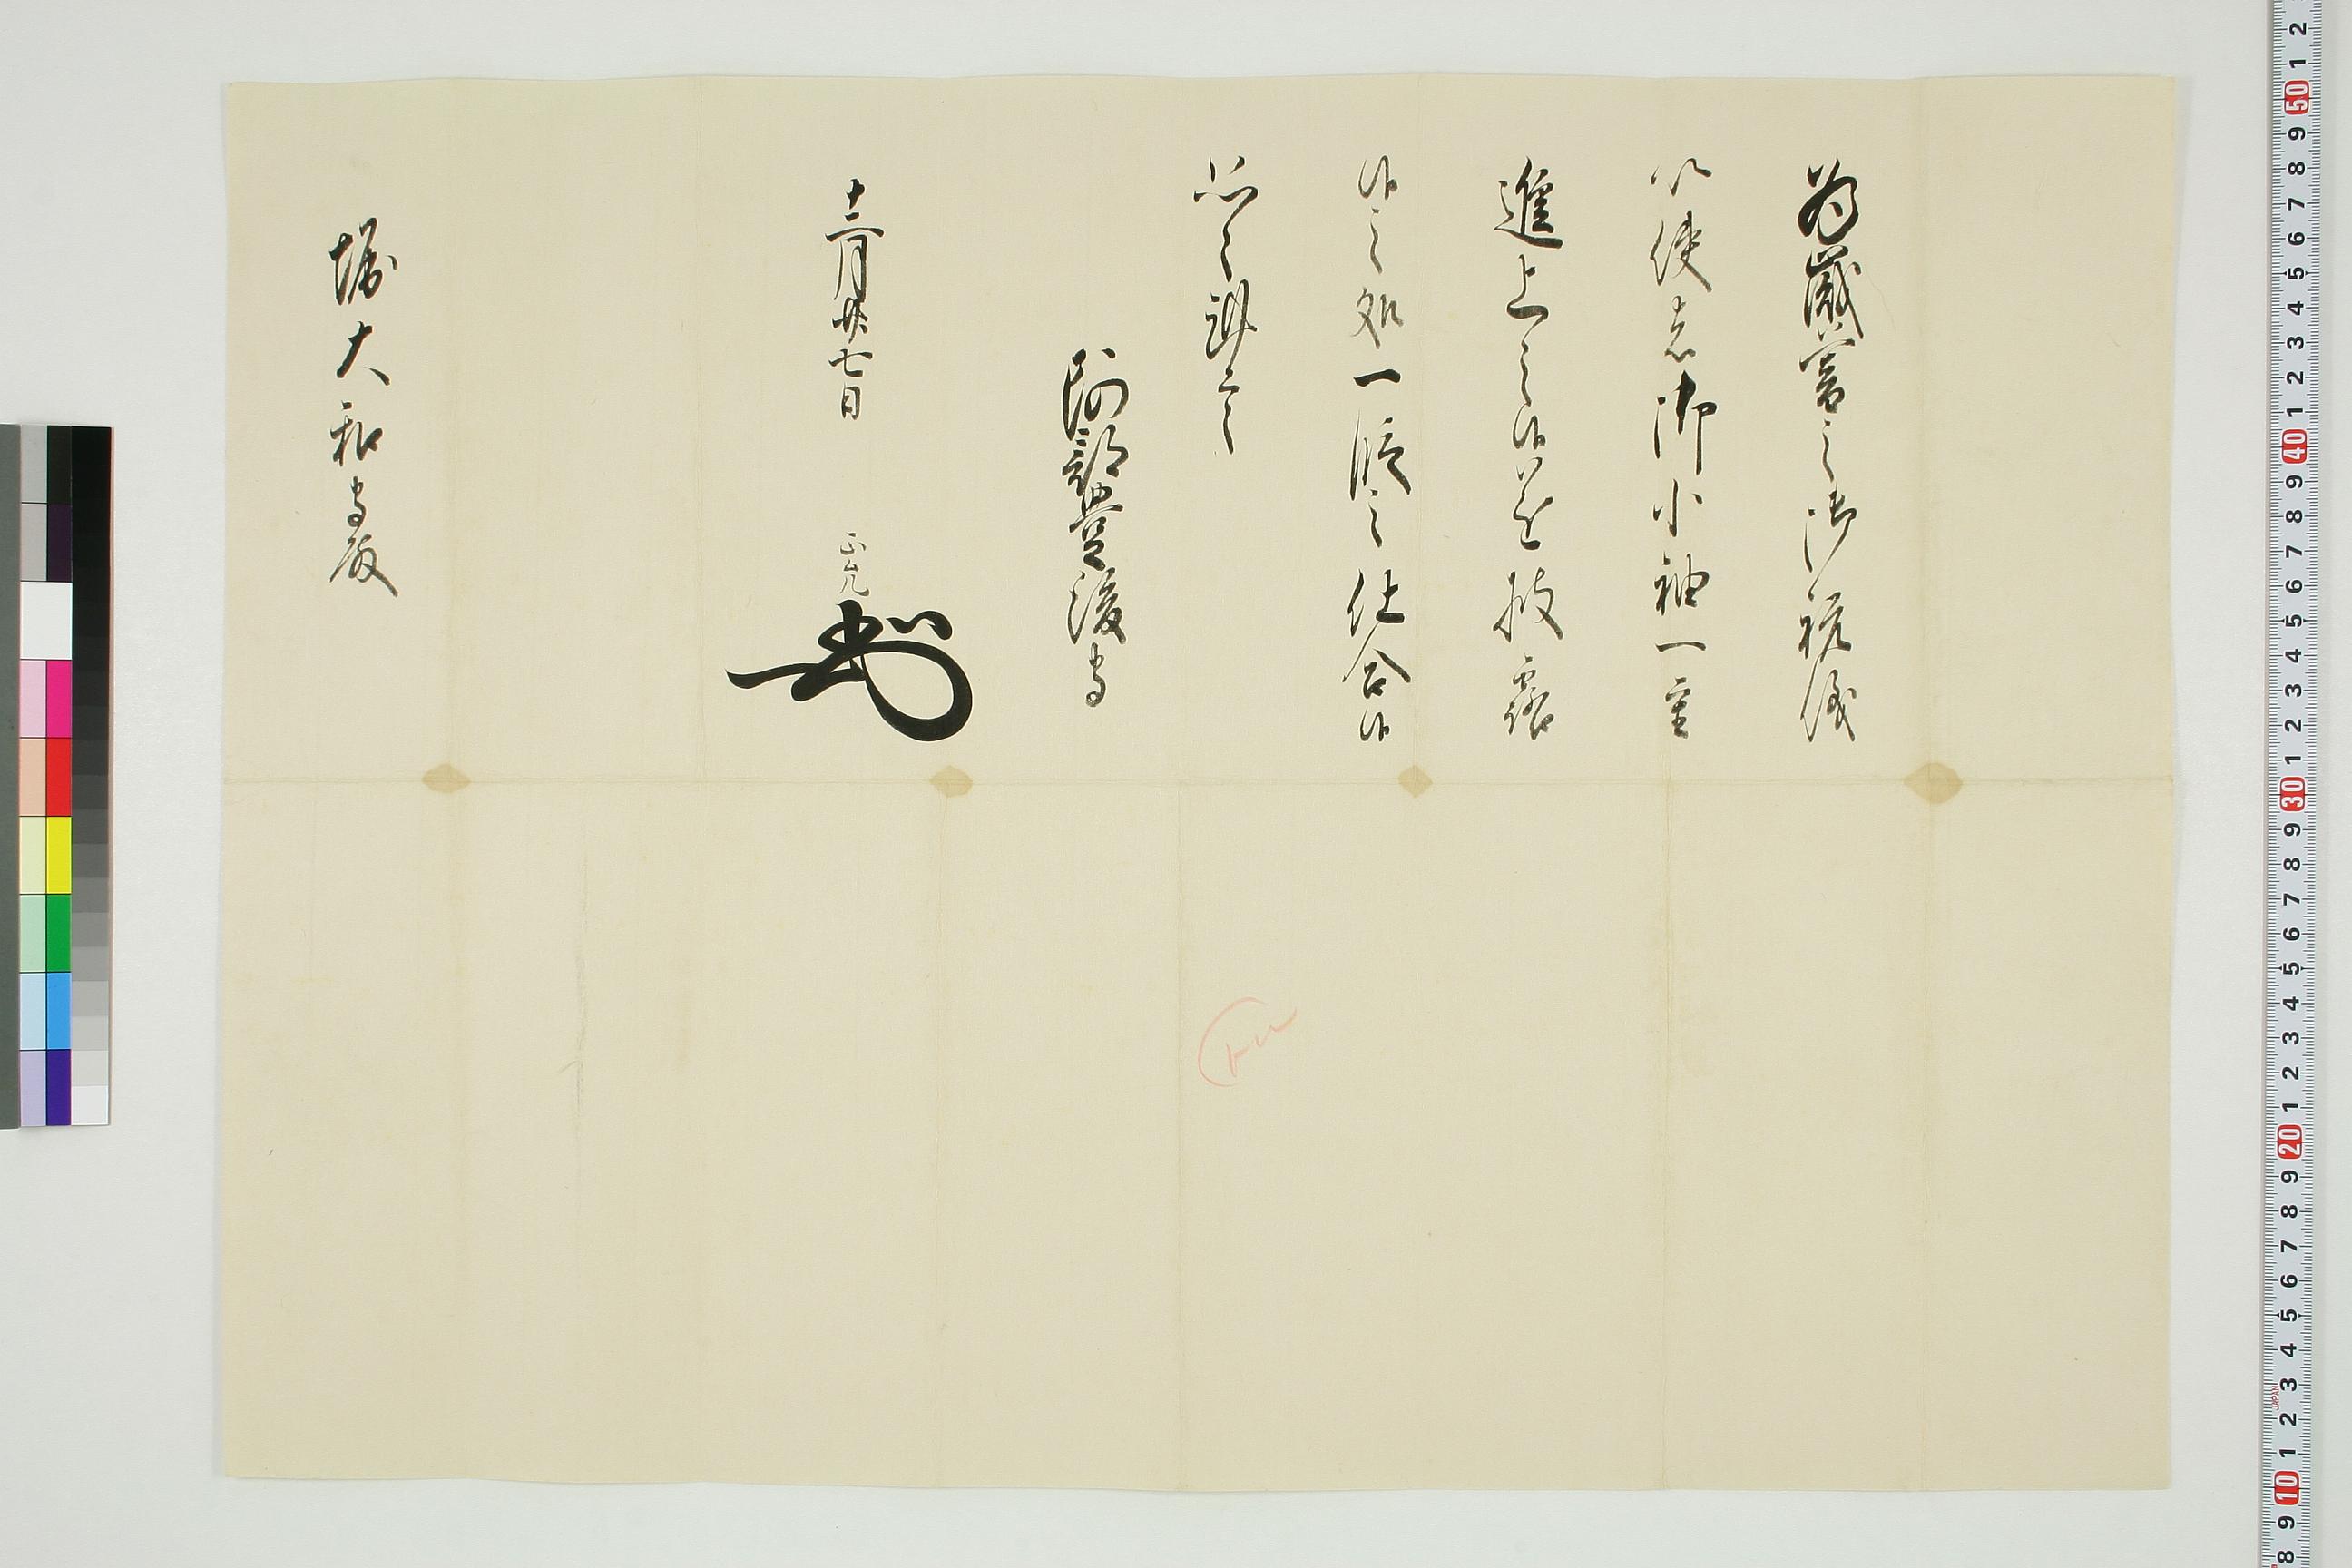 為歳暮之御祝儀
以使者御小袖一重
進上之候遂披露
候之処一段之仕合候
恐々謹言
阿部豊後守
十二月廿七日 正允
堀大和守殿